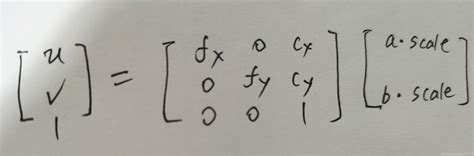 [u v 1] = [fx 0 cx; 0 fy cy; 0 0 1] [a·scale; b·scale]